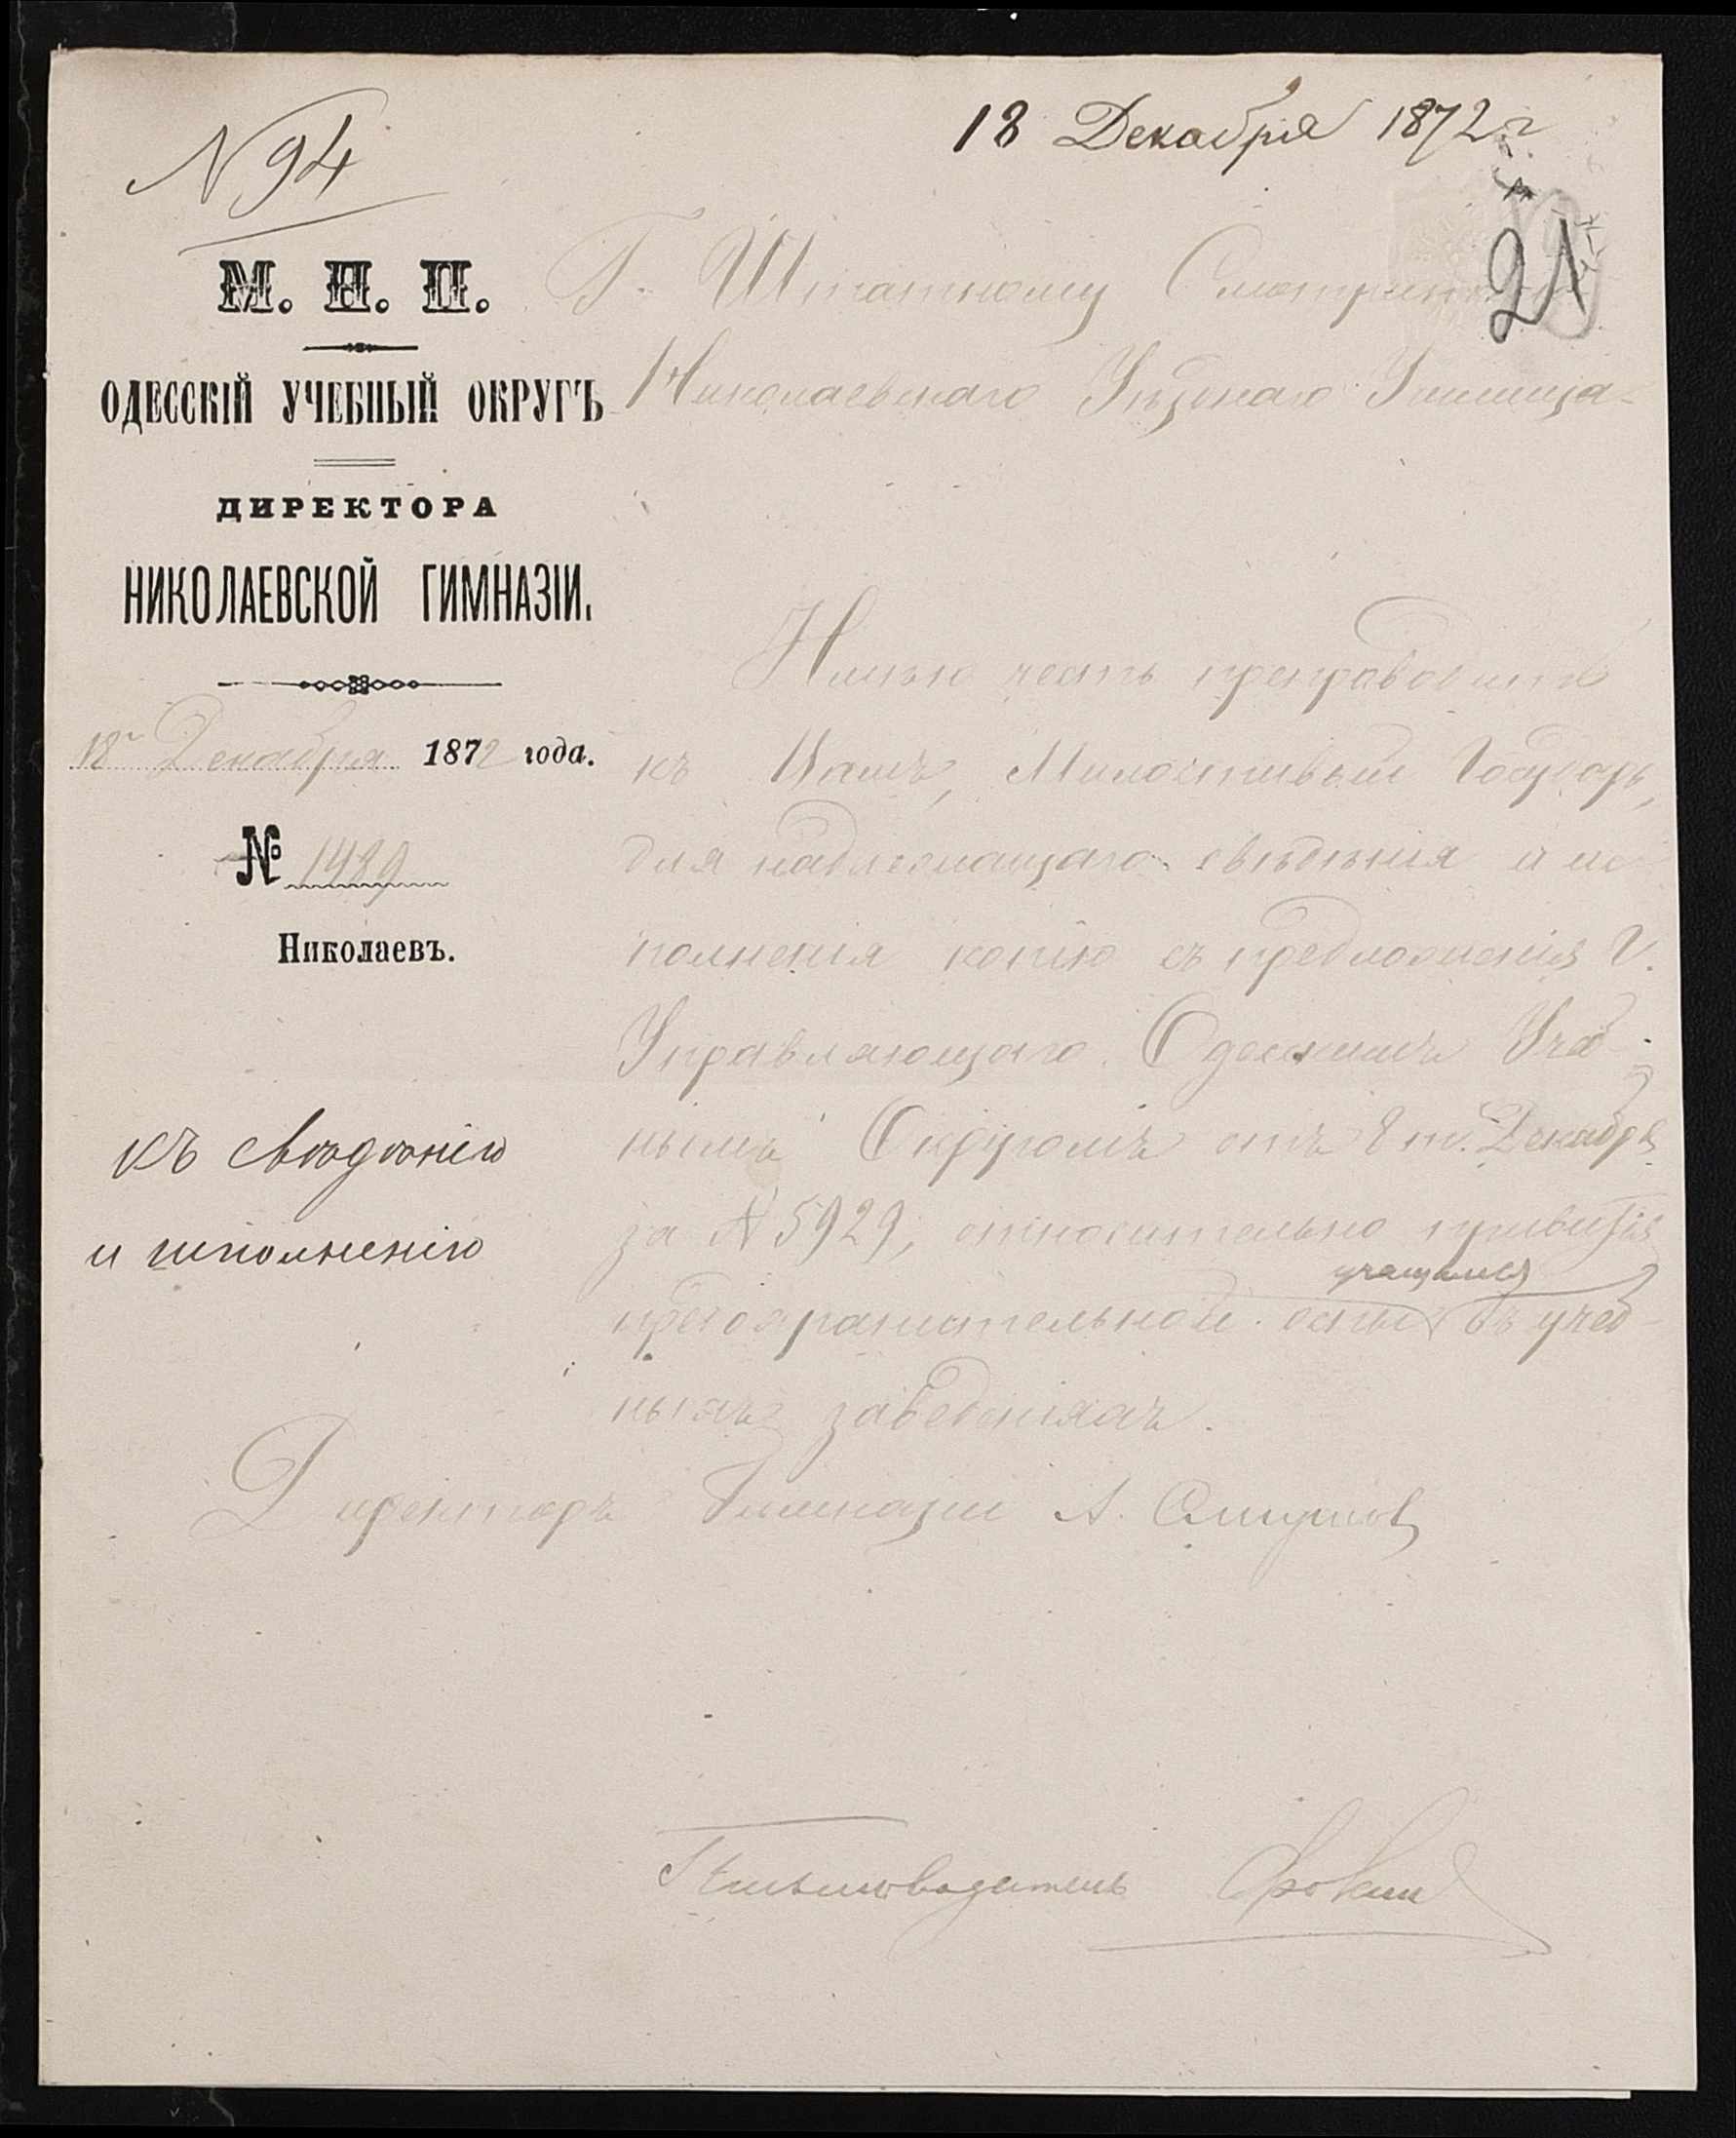 N 94
18 Декабря 1872 г
21
М. Н. П.
ОДЕССКІЙ УЧЕБНЫЙ ОКРУГЪ
ДИРЕКТОРА
НИКОЛАЕВСКОЙ ГИМНАЗІИ.
18 Декабря 1872 года.
№ 1489
Николаевъ.
къ свѣдѣнію
и исполненію
Г. Штатному Смотрителю
Николаевскаго Уѣзднаго Училища
Имѣю честь препроводить
къ Вамъ, Милостивый Государь,
для надлежащаго свѣдѣнія и ис
полненія копію съ предложенія Г.
Управляющаго Одесскимъ Учеб
нымъ Округомъ отъ 8 т. Декабря
за N 5929, относительно прививзтія
учащимся
предохранительной оспы въ учеб
ныхъ заведеніяхъ.
Директоръ Гимназіи А.
Письмоводитель